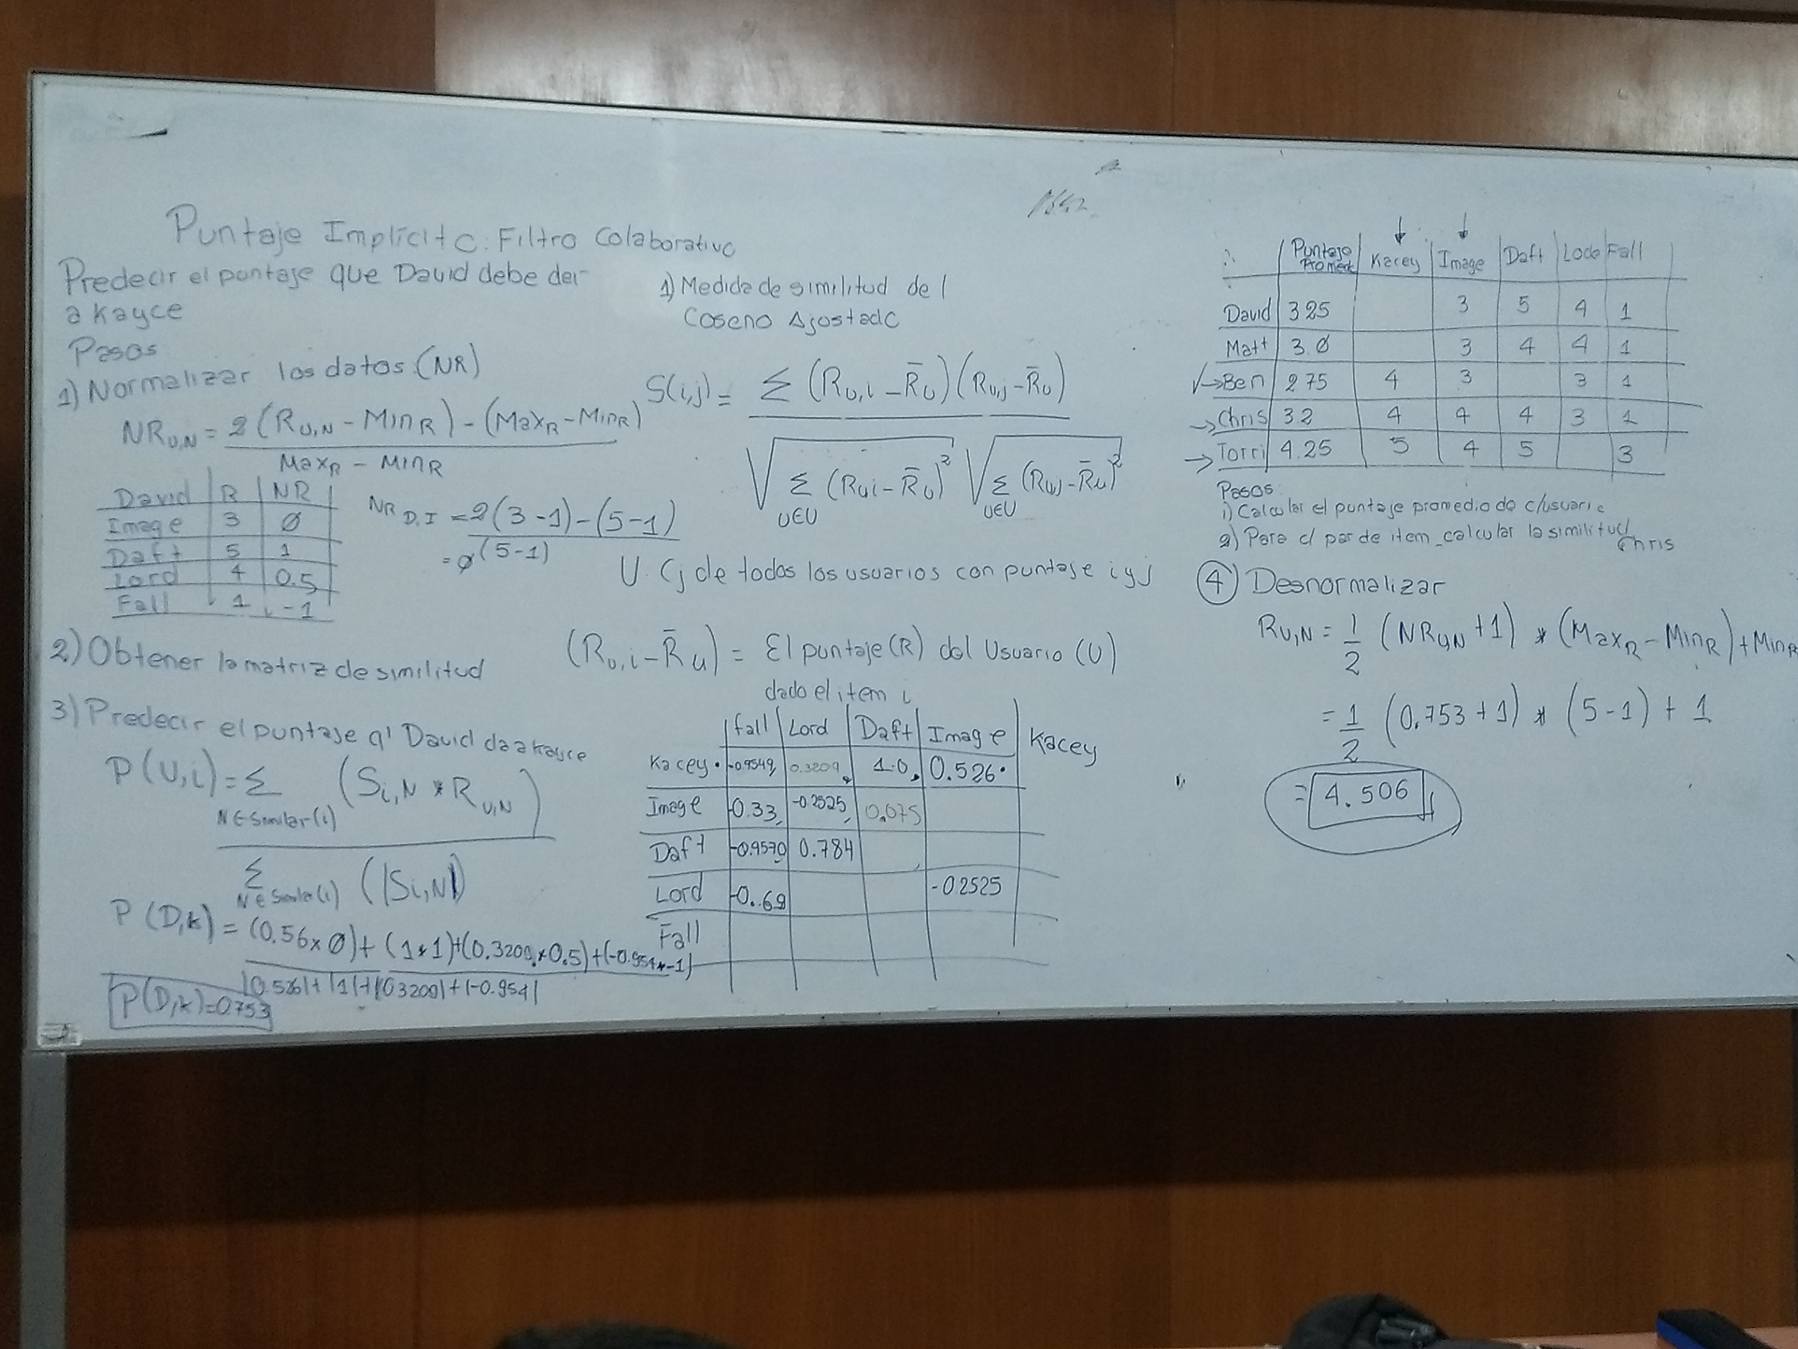 Puntaje Implícito: Filtro Colaborativo
Predecir el puntaje que David debe der
a Kayce
Pasos
1) Normalizar los datos (NR)
NR U,N = 2 (R U,N - Min R) - (Max R - Min R)
Max R - Min R
David | R | NR
Image | 3 | Ø
Daft | 5 | 1
Lord | 4 | 0.5
Fall | 1 | -1
NR D,I = 2(3-1)-(5-1)
(5-1)
= Ø
2) Obtener la matriz de similitud
3) Predecir el puntaje q' David da a Kayce
P(U,i) = Σ (S i,N * R U,N)
N ∈ Similar(i)
Σ (|S i,N|)
N ∈ Similar(i)
P(D,k) = (0.56 x Ø) + (1*1) + (0.3209 * 0.5) + (-0.954 * -1)
|0.526| + |1| + |0.3209| + |-0.954|
P(D,K) = 0.753
1) Medida de similitud del
Coseno Ajostado
S(i,j) = Σ (R U,i - R̄ U) (R U,j - R̄ U)
√ Σ (R U,i - R̄ U)² √ Σ (R U,j - R̄ U)²
U∈U U∈U
U. Cj de todos los usuarios con puntaje i y j
(R U,i - R̄ U) = El puntaje (R) del Usuario (U)
dado el item i
| Fall | Lord | Daft | Image | Kacey
Kacey | -0.9549 | 0.3209 | 1.0 | 0.526
Image | -0.33 | -0.2525 | 0.075
Daft | -0.9570 | 0.784
Lord | -0.69 | | | -0.2525
Fall
∴ | Puntaje Promed | Kacey | Image | Daft | Lode | Fall
David | 3.25 | | 3 | 5 | 4 | 1
Matt | 3.Ø | | 3 | 4 | 4 | 1
√→ Ben | 2.75 | 4 | 3 | | 3 | 1
→ Chris | 3.2 | 4 | 4 | 4 | 3 | 1
→ Torri | 4.25 | 5 | 4 | 5 | | 3
Pasos
1) Calcular el puntaje promedio de c/usuario
2) Para c/ par de item calcular la similitud
Chris
4 Desnormalizar
R U,N = 1/2 (NR U,N + 1) * (Max R - Min R) + Min R
= 1/2 (0.753 + 1) * (5 - 1) + 1
= 4.506